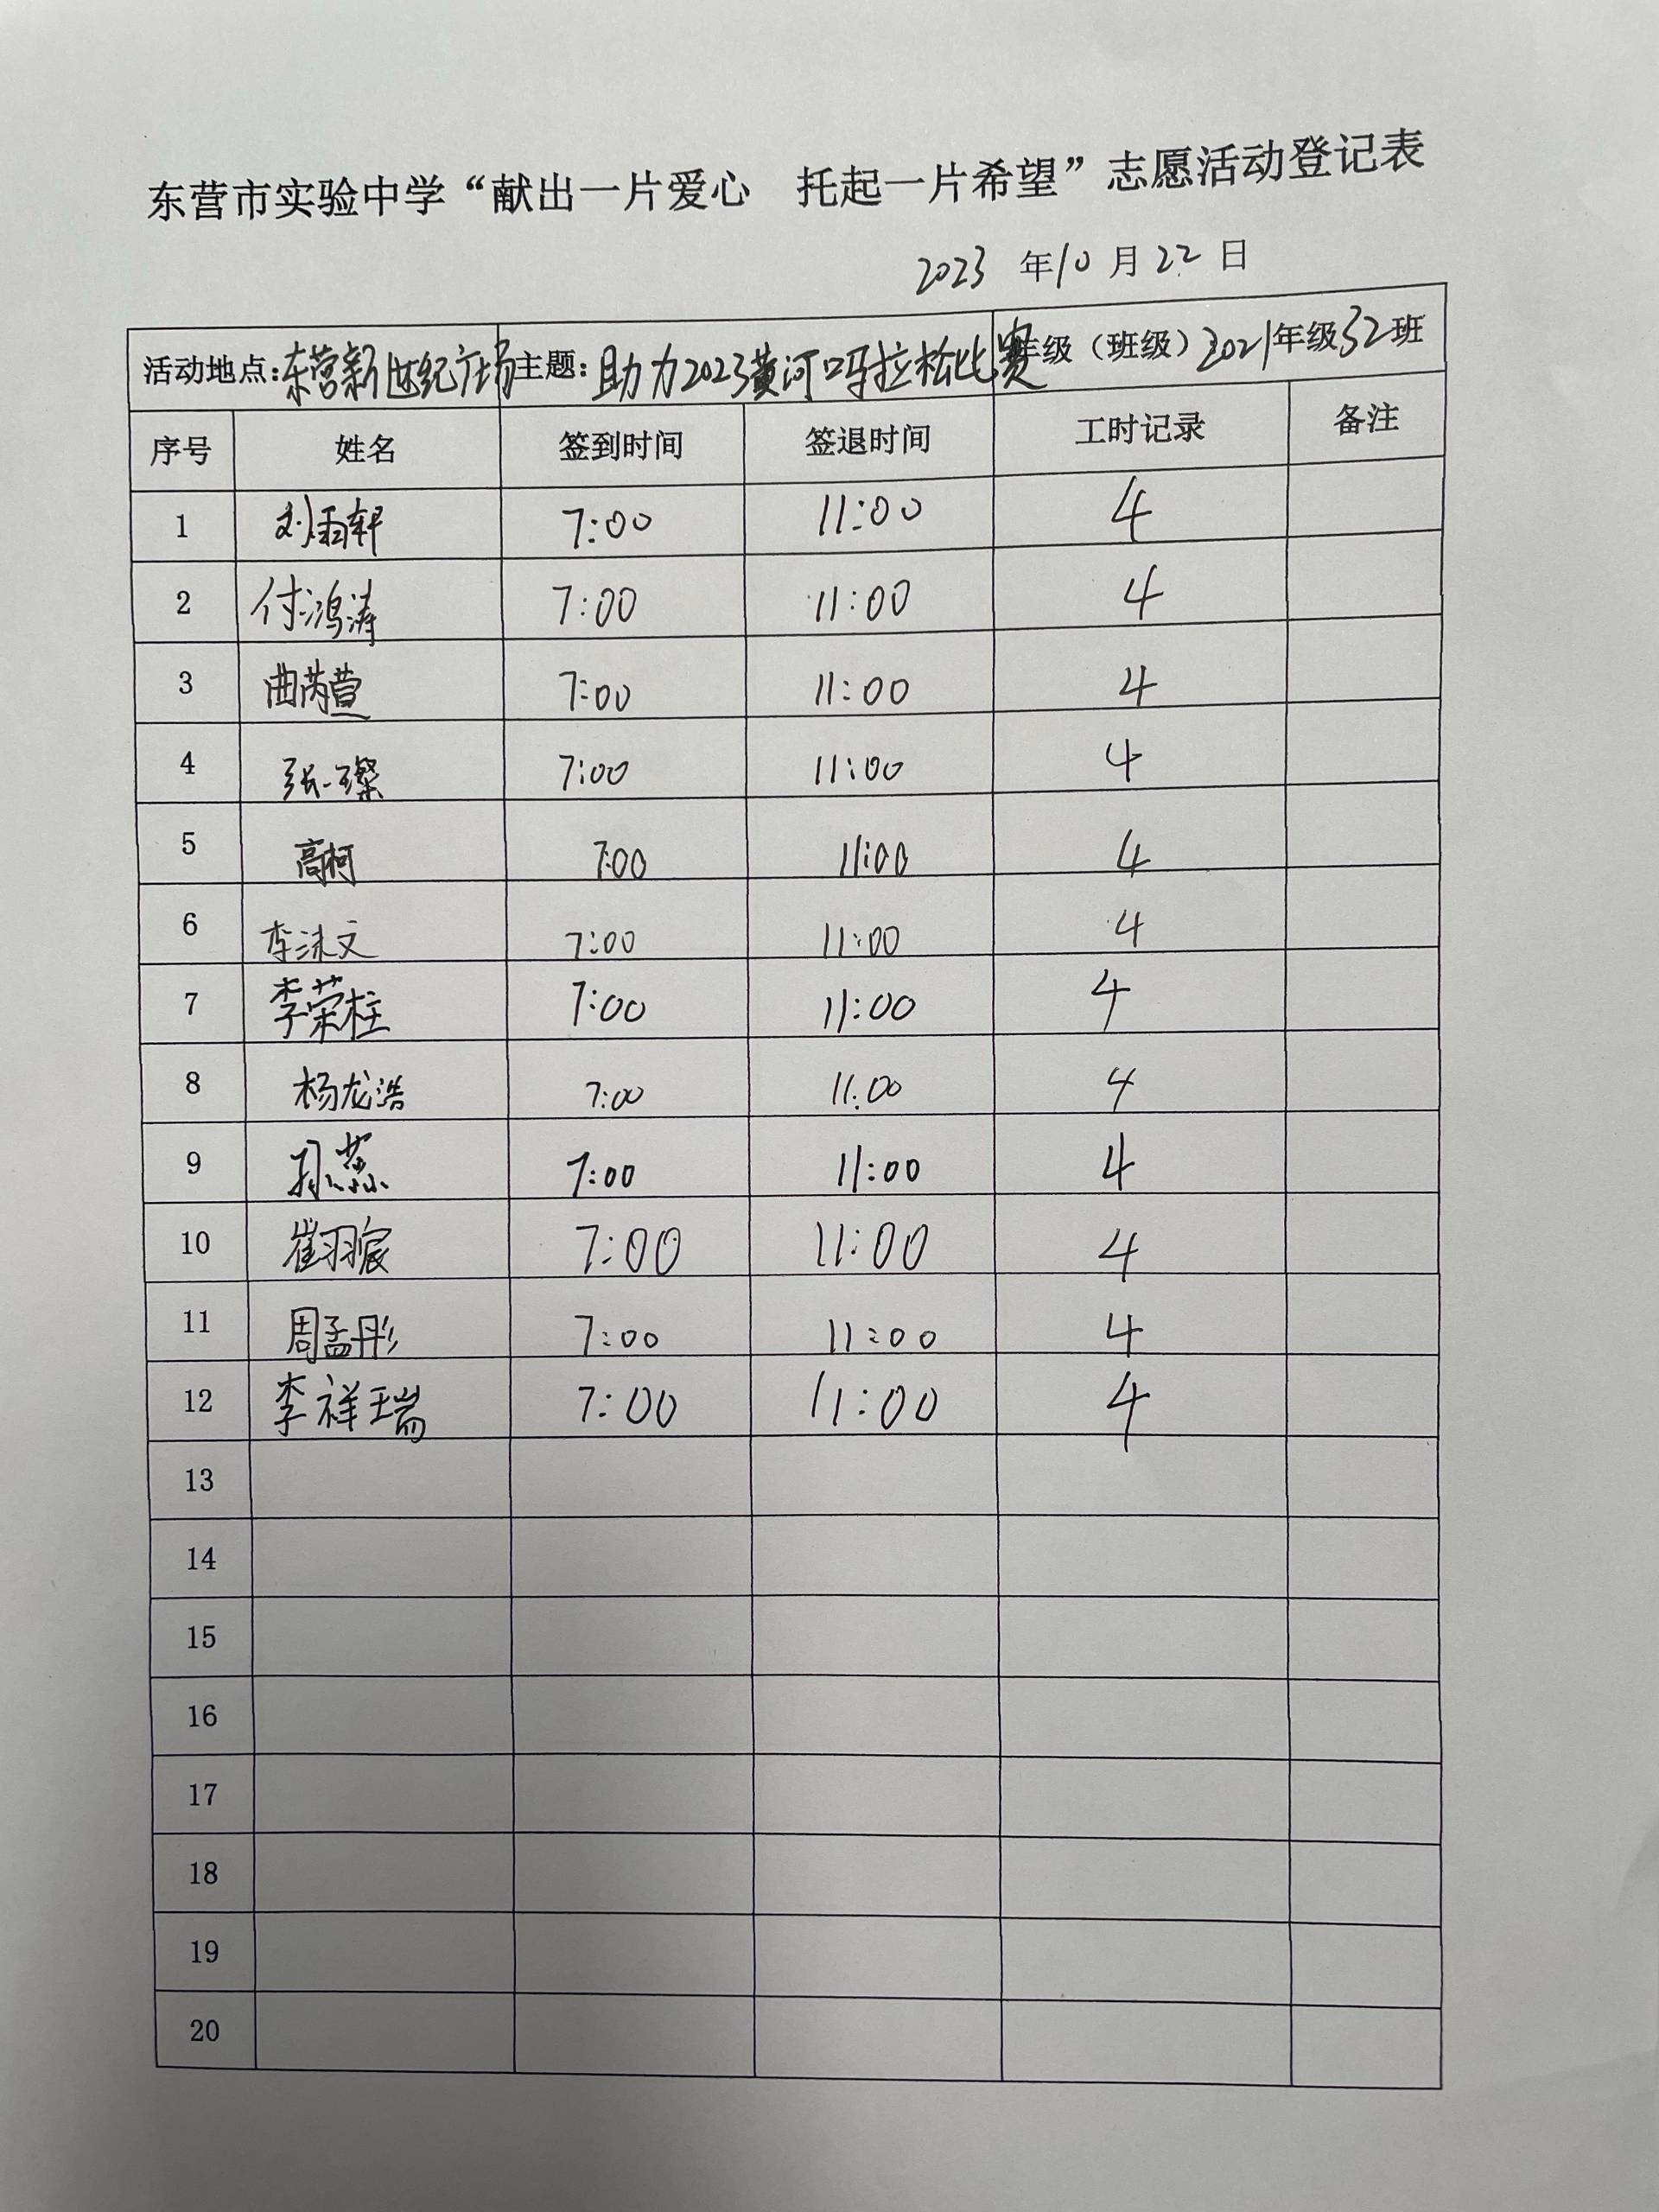 东营市实验中学“献出一片爱心 托起一片希望”志愿活动登记表
2023 年10月22日
活动地点:东营新世纪广场 主题:助力2023黄河口马拉松比赛 年级（班级）2021年级32班
序号 姓名 签到时间 签退时间 工时记录 备注
1 刘雨轩 7:00 11:00 4
2 付鸿涛 7:00 11:00 4
3 曲芮萱 7:00 11:00 4
4 张一璨 7:00 11:00 4
5 高柯 7:00 11:00 4
6 李沫文 7:00 11:00 4
7 李荣柱 7:00 11:00 4
8 杨龙浩 7:00 11:00 4
9 孙 7:00 11:00 4
10 崔羽宸 7:00 11:00 4
11 周孟彤 7:00 11:00 4
12 李祥瑞 7:00 11:00 4
13
14
15
16
17
18
19
20